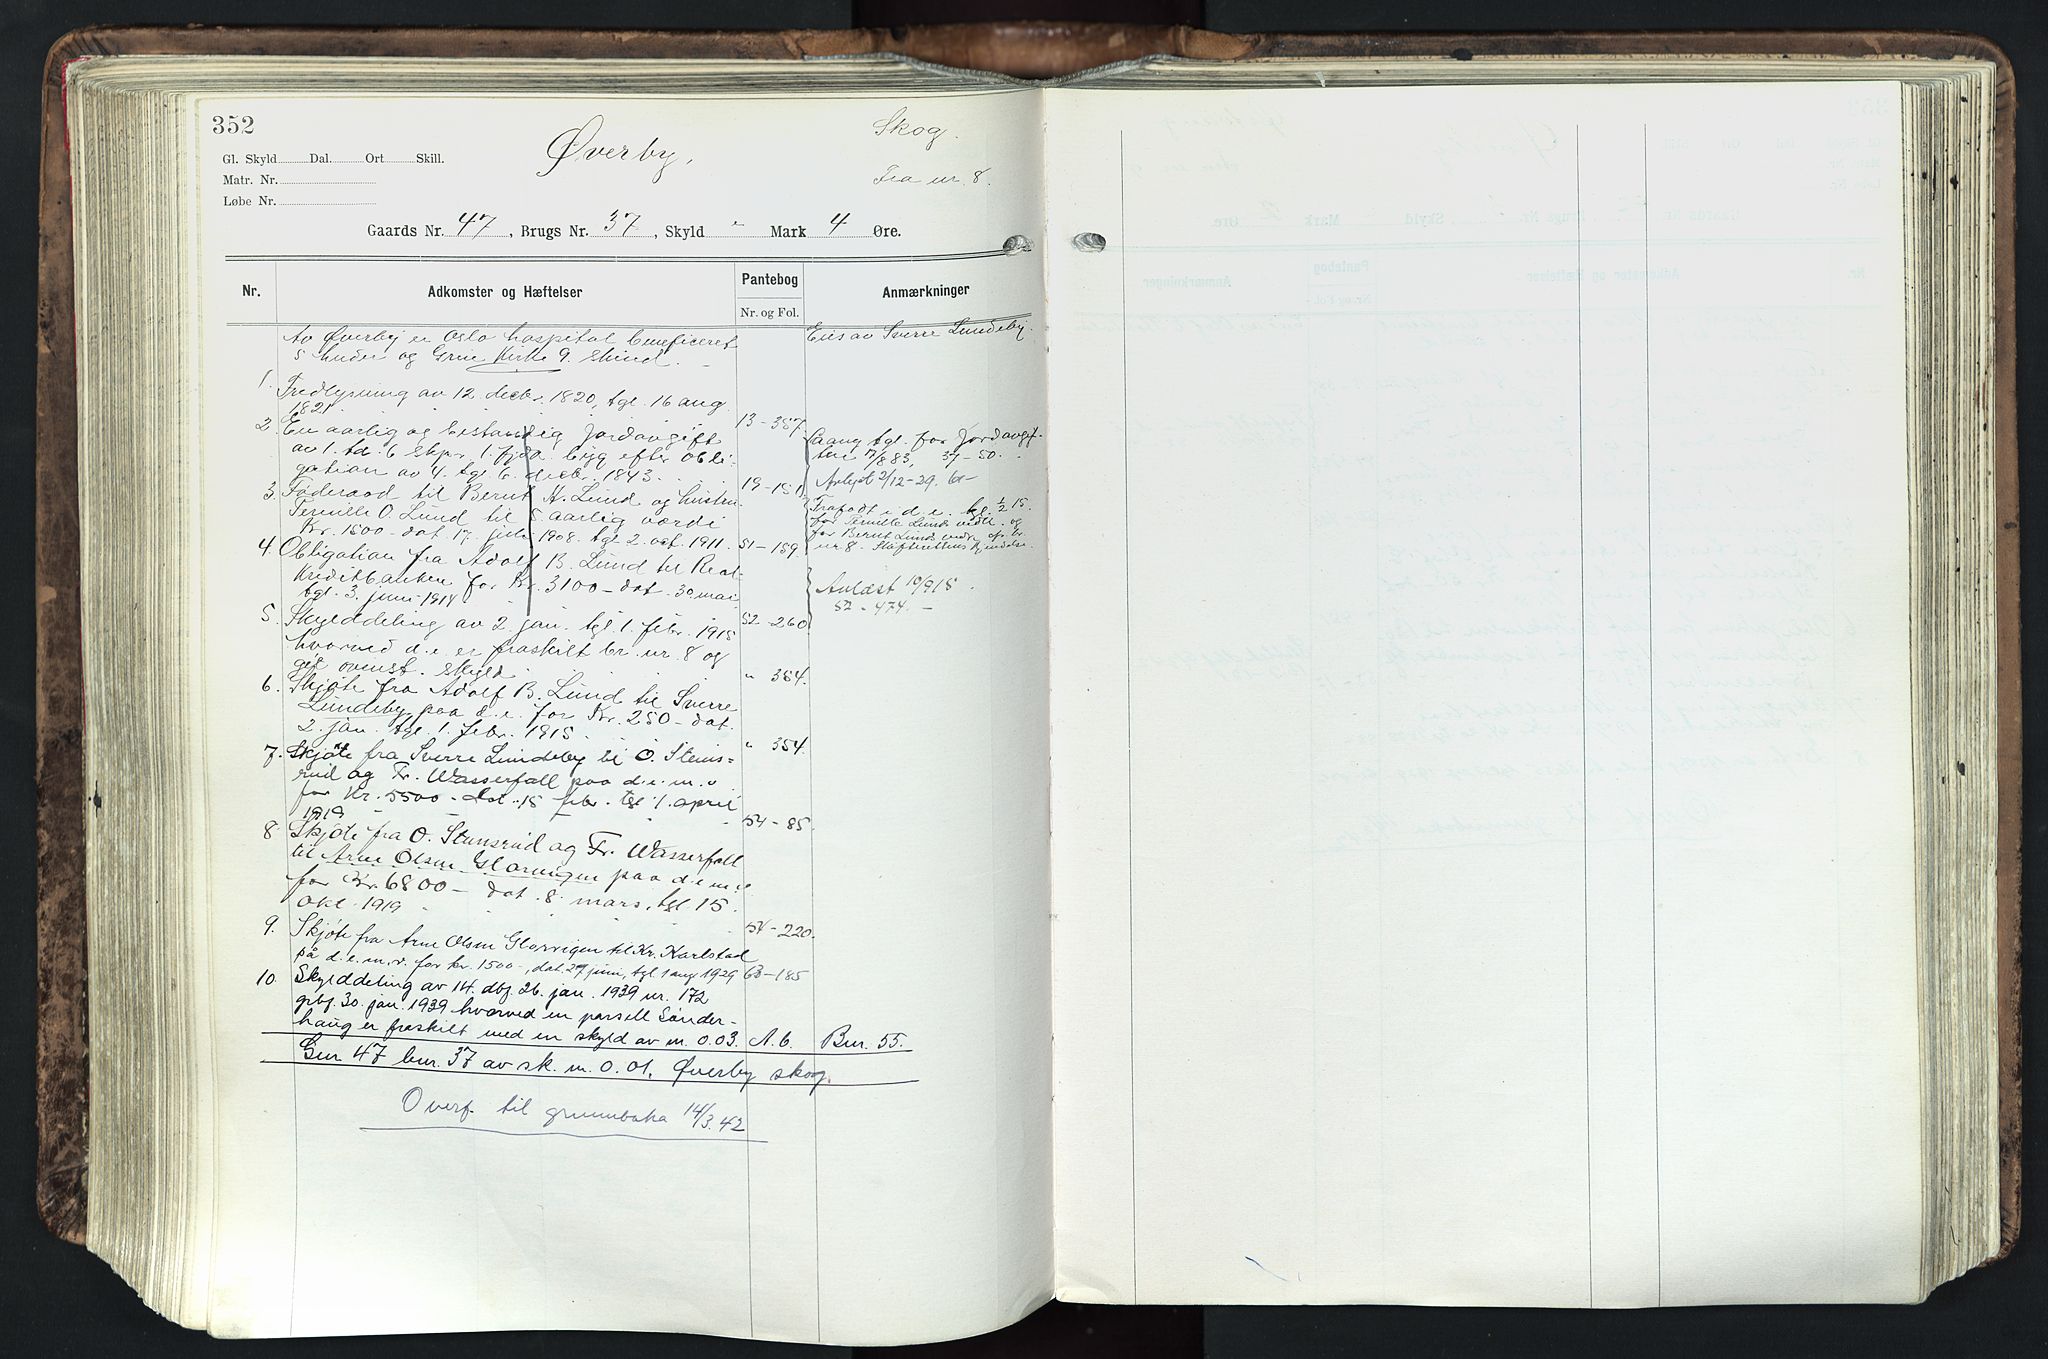 352
Øverby,
Skog.
Gl. Skyld Dal. Ort Skill.
Matr. Nr.
Fra nr. 8.
Løbe Nr.
Gaards Nr. 47, Brugs Nr. 37, Skyld - Mark 4 Øre.
Nr. Adkomster og Hæftelser Pantebog Anmærkninger
Nr. og Fol.
Av Øverby er Oslo hospital beneficeret
5 huder og Grue Kirke 9 skind.
Eies av Sverre Lundeby.
1. Fredlysning av 12 decbr. 1820, tgl. 16 aug.
1821. 13-387
2. En aarlig og bestandig jordavgift
av 1. td. 6 skpr. 1. fjdk. byg efter obli-
gation av 4. tgl. 6. decbr. 1843. 19-151
tgl. for Jordavgif-
ten 7/8 83, 37-50.
Avlyst 2/12-29.
3. Føderaad til Bernt H. Lund og hustru
Pernille O. Lund til 5 aarlig værdi
Kr. 1500 - dat. 17. juli 1908. tgl. 2. oct. 1911. 51-159
Frafaldt i d. e. tgl. 1/2 15.
for Pernille Lunds vedk. og
for Bernt Lunds vedk.
nr. 8. Skifterettens
4. Obligation fra Adolf B. Lund til Real-
Kreditbanken for Kr. 3100 - dat. 30. mai
tgl. 3. juni 1914 52-260
Avlæst 10/9 18.
52-474. -
5. Skylddeling av 2. jan. tgl. 1. febr. 1915
hvorved d. e. er fraskilt br. nr. 8 og
git ovenst. skyld " 354.
6. Skjøte fra Adolf B. Lund til Sverre
Lundeby paa d. e. for Kr. 250 - dat.
2. jan. tgl. 1. febr. 1915. " 354.
7. Skjøte fra Sverre Lundeby til O. Stens-
rud og Fr. Wasserfall paa d. e. m. v
for Kr. 5500 - dat. 15 febr. tgl 1. april
1919 54-85
8. Skjøte fra O. Stensrud og Fr. Wasserfall
til Arne Olsen Glorvigen paa d. e. m. v.
for Kr. 6800 - dat. 8. mars, tgl. 15.
okt. 1919 54-220.
9. Skjøte fra Arne Olsen Glorvigen til Kr. Karlstad
på d. e. m. v. for kr. 1500 -, dat. 27 juni, tgl 1 aug 1929 63-185
10. Skylddeling av 14. dbf. 26. jan. 1939 nr. 172
grbf. 30. jan. 1939 hvorved en parsell Sønder-
haug er fraskilt med en skyld av m. 0.03. A. 6. Bnr. 55.
Gnr 47 bnr. 37 av sk. m. 0.01. Øverby skog.
Overf. til grunnboka 14/3.42